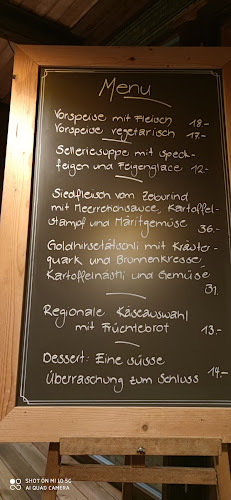 Menu
Vorspeise mit Fleisch 18.-
Vorspeise vegetarisch 17.-
Selleriesuppe mit Speck-
feigen und Feigenglace 12.-
Siedfleisch vom Zeburind
mit Meerrettichsauce, Kartoffel-
stampf und Märitgemüse
36.-
Goldhirsetätschli mit Kräuter-
quark und Brunnenkresse,
Kartoffelnästli und Gemüse
31.
Regionale Käseauswahl
mit Früchtebrot 13.-
Dessert: Eine süsse
Überraschung zum Schluss 14.-
SHOT ON MI 10 5G
AI QUAD CAMERA